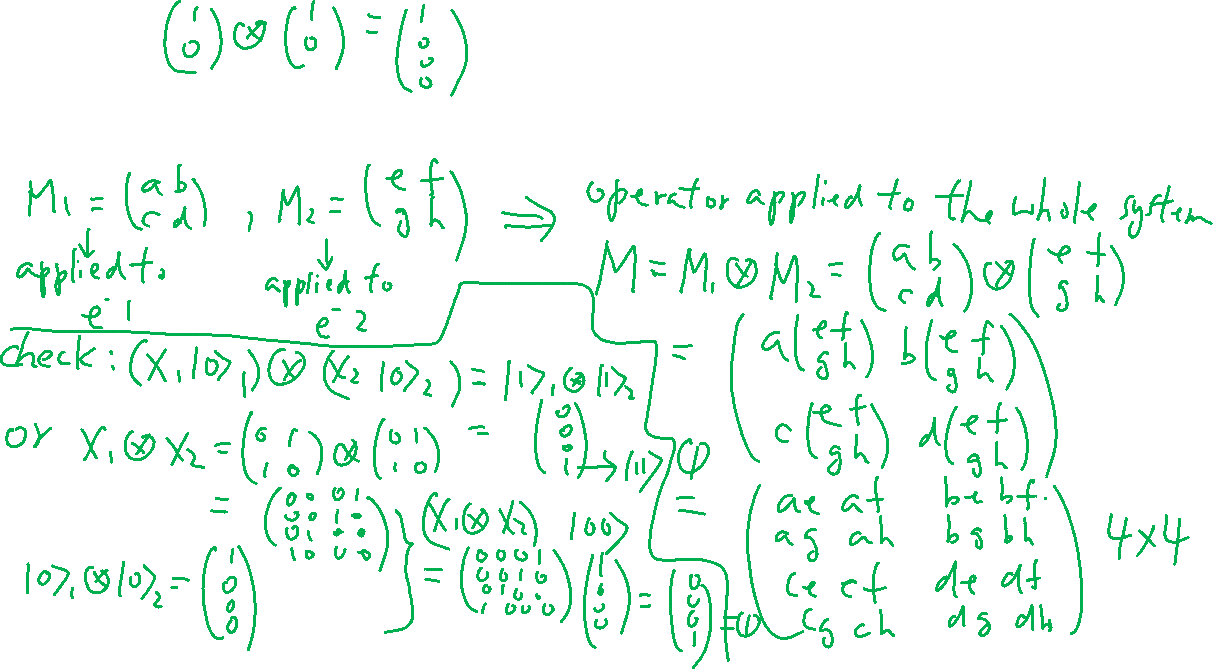 (1 0) ⊗ (1 0) = (1 0 0 0)
M₁ = (a b / c d), M₂ = (e f / g h) ⇒ operator applied to the whole system
↓ applied to e⁻1
↓ applied to e⁻2
M = M₁ ⊗ M₂ = (a b / c d) ⊗ (e f / g h)
= (a(e f / g h) b(e f / g h) / c(e f / g h) d(e f / g h))
= (ae af be bf / ag ah bg bh / ce cf de df / cg ch dg dh) 4×4
check: (X₁|0⟩₁) ⊗ (X₂|0⟩₂) = |1⟩₁ ⊗ |1⟩₂
= (0 0 0 1) → |11⟩ φ
or X₁ ⊗ X₂ = (0 1 / 1 0) ⊗ (0 1 / 1 0)
= (0 0 0 1 / 0 0 1 0 / 0 1 0 0 / 1 0 0 0)
|0⟩₁ ⊗ |0⟩₂ = (1 0 0 0)
} (X₁ ⊗ X₂) |00⟩
= (0 0 0 1 / 0 0 1 0 / 0 1 0 0 / 1 0 0 0) (1 0 0 0) = (0 0 0 1) = φ